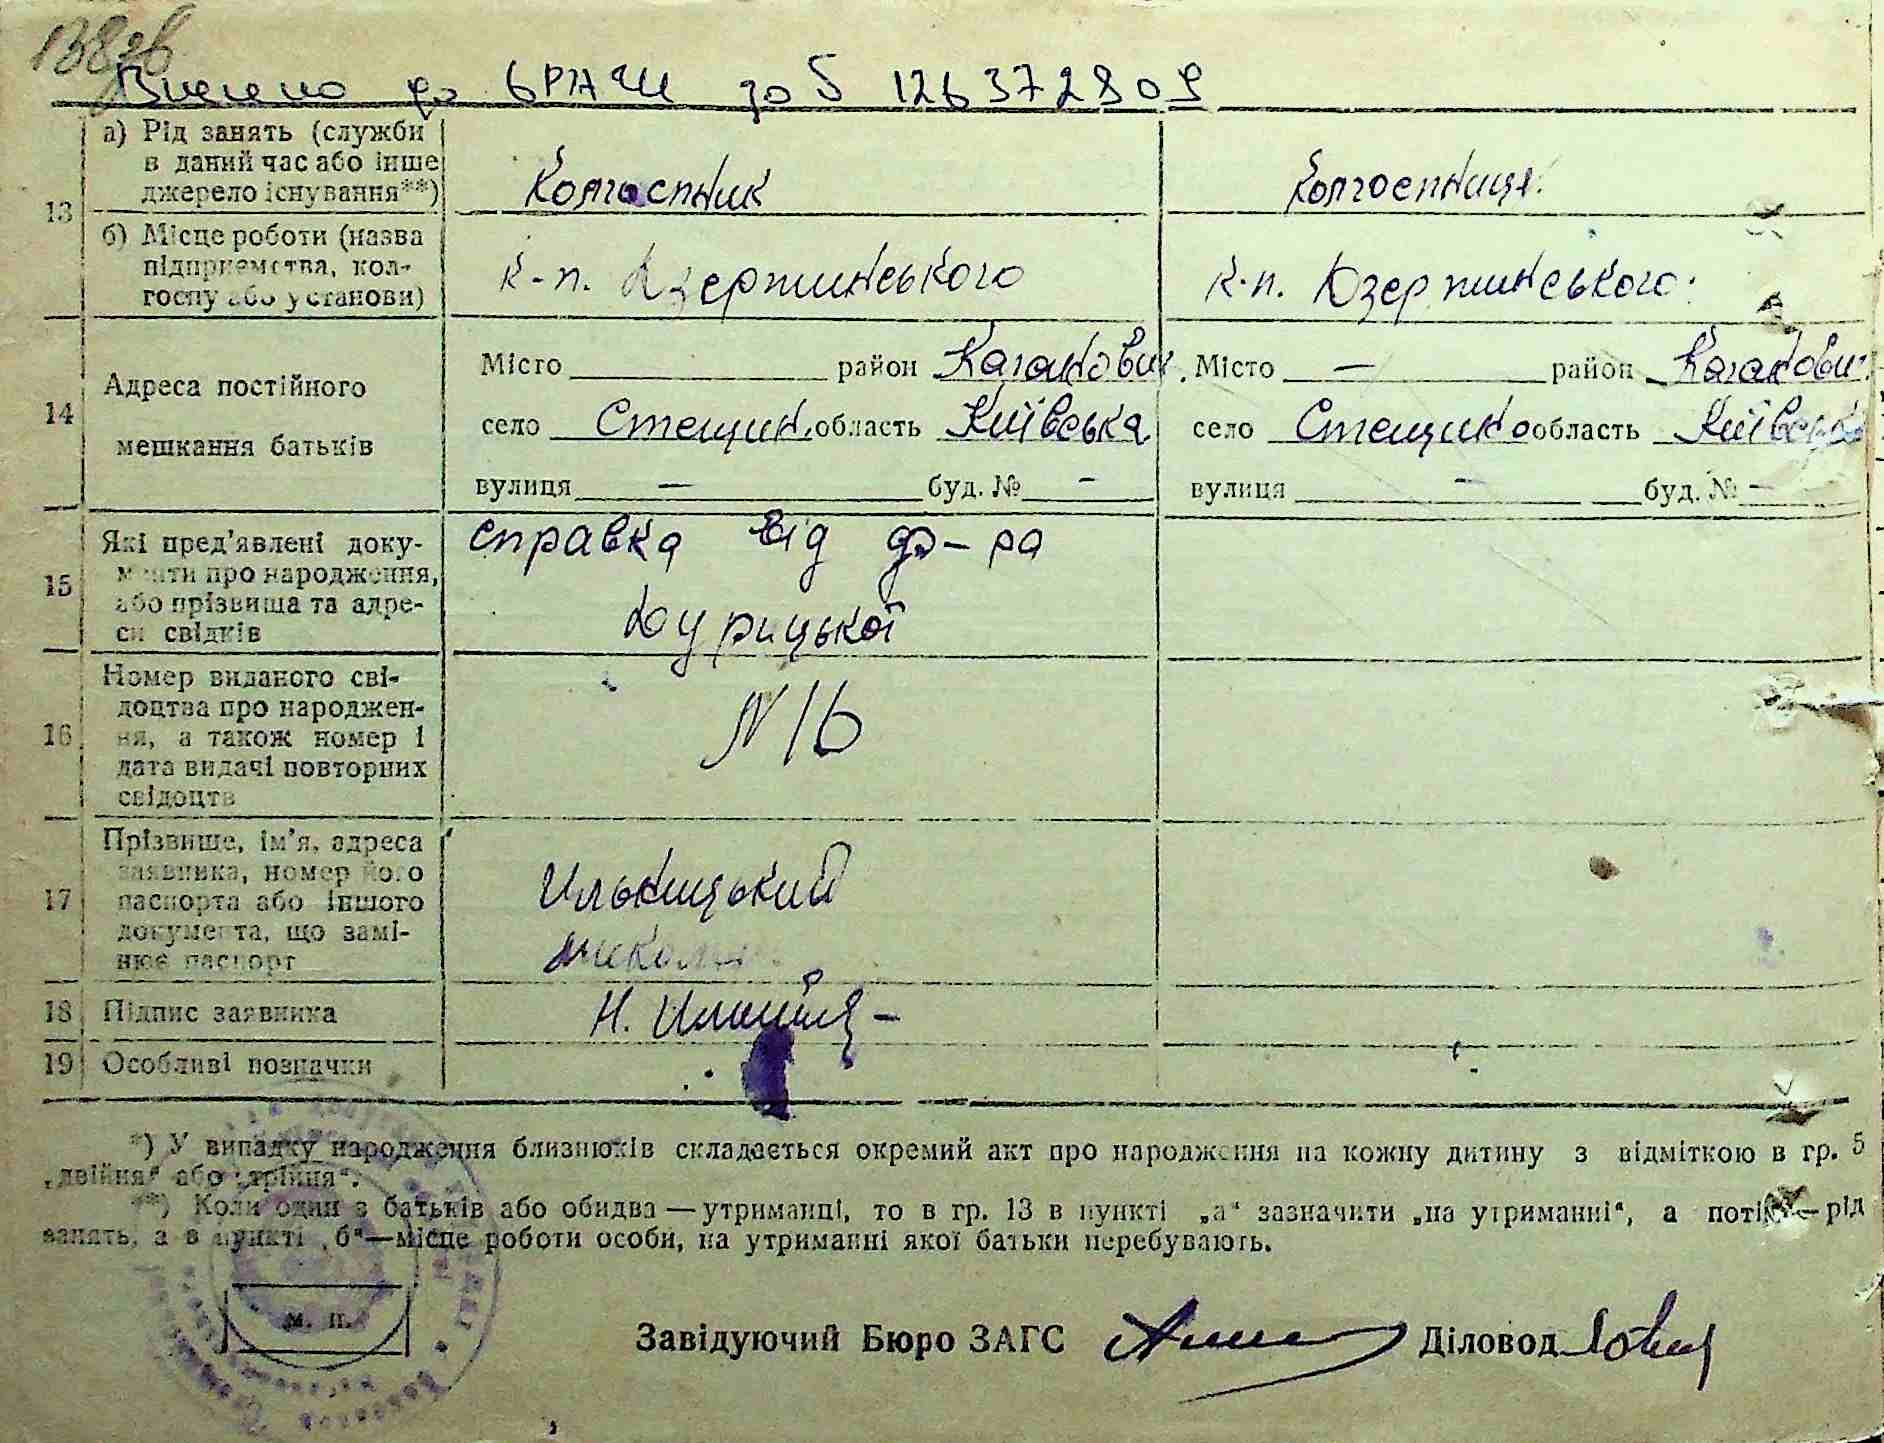 Внесено до ДРАЦС за № 126372809
13 а) Рід занять (служби в даний час або інше джерело існування**) Колгоспник Колгоспниця.
б) Місце роботи (назва підприємства, колгоспу або установи) к-п. Дзержинського к-п. Дзержинського.
14 Адреса постійного мешкання батьків
Місто район Каганович. Місто — район Каганович.
село Стещина область Київська село Стещина область Київська
вулиця — буд. № - вулиця - буд. № -
15 Які пред'явлені доку-
менти про народження,
або прізвища та адре-
си свідків
справка від др-ра
Дурицької
16 Номер виданого сві-
доцтва про народжен-
ня, а також номер і
дата видачі повторних
свідоцтв
N 16
17 Прізвище, ім'я, адреса
заявника, номер його
паспорта або іншого
документа, що замі-
нює паспорт
Ильницький
Микола
18 Підпис заявника Н.
19 Особливі позначки
*) У випадку народження близнюків складається окремий акт про народження на кожну дитину з відміткою в гр. 5
„двійня" або „трійня".
**) Коли один з батьків або обидва — утриманці, то в гр. 13 в пункті „а" зазначити „на утриманні", а потім — рід
занять, а в пункті „б"—місце роботи особи, на утриманні якої батьки перебувають.
м. п.
Завідуючий Бюро ЗАГС Діловод